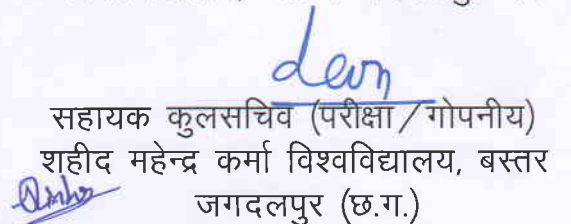 सहायक कुलसचिव (परीक्षा/गोपनीय)
शहीद महेन्द्र कर्मा विश्वविद्यालय, बस्तर
जगदलपुर (छ.ग.)